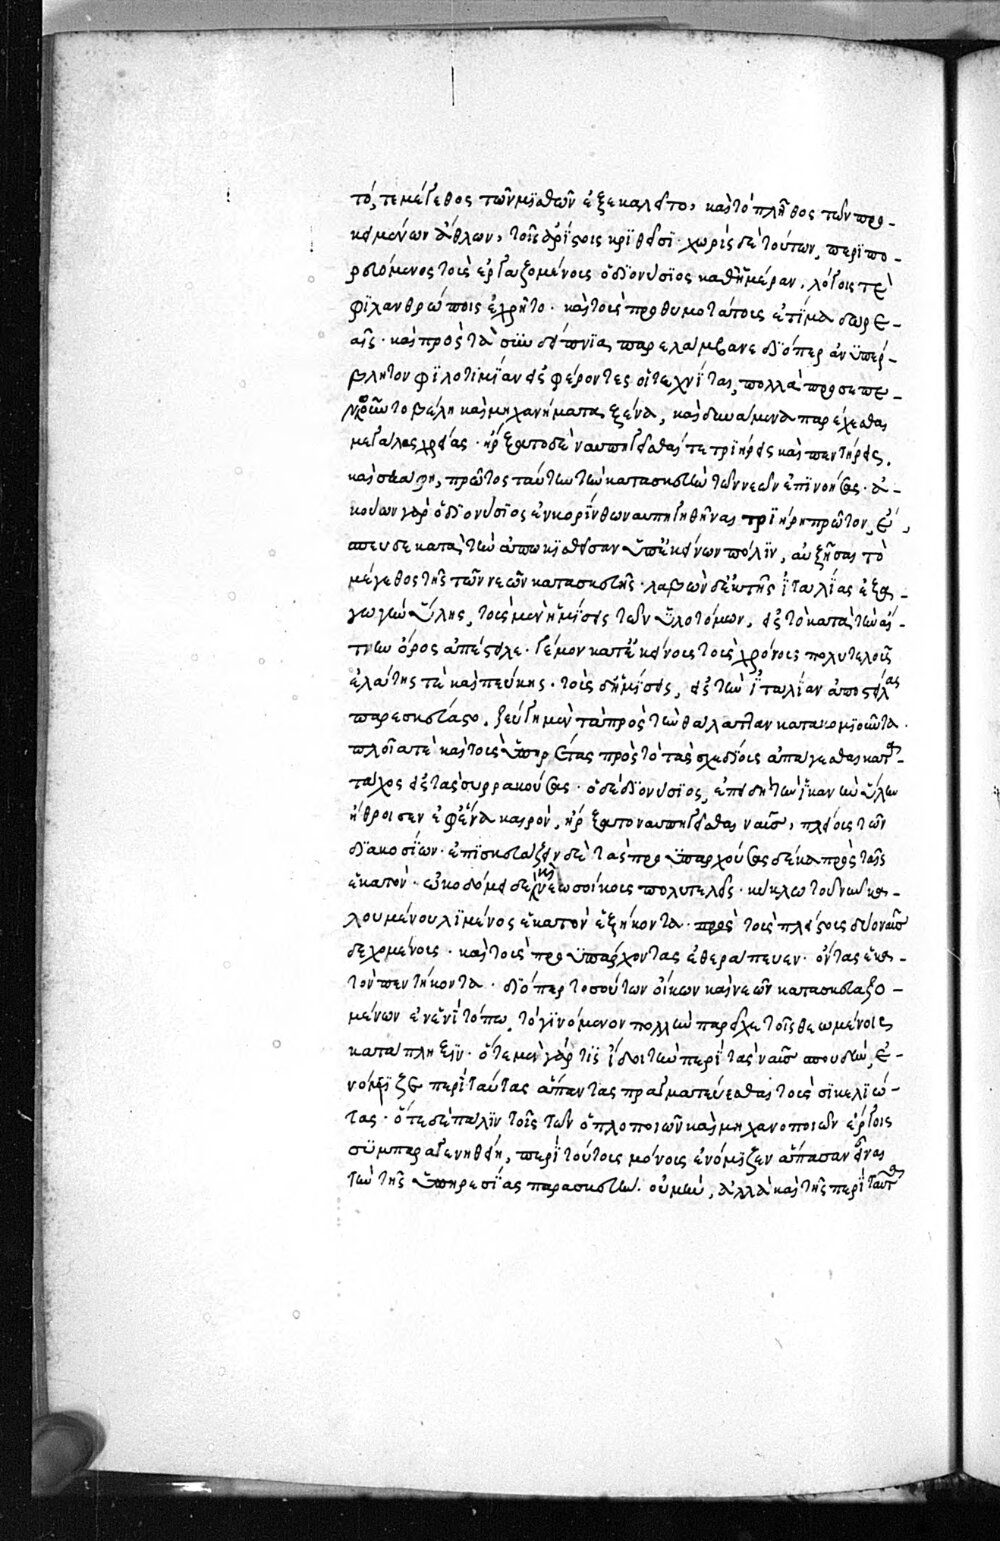 τό, τε μέγεθος τῶν μϊσθῶν ἐξεκαλεῖτο, καὶ τὸ πλῆθος τῶν προ-
κειμένων ἄθλων, τοῖς ἀρί̈στοις κρϊθεῖσϊ· χωρὶς δὲ τούτων, περϊπο-
ρευόμενος τοὺς ἐργαζομένους ὁ δϊονύσϊος καθ' ἡμέραν, λόγοις τὲ
φϊλανθρώποις ἐχρῆτο· καὶ τοὺς προθυμοτάτους ἐτίμα δωρε-
αῖς· καὶ πρὸς τὰ σύνδειπνα παρελάμβανε διόπερ ἀνϋπέρ-
βλητον φϊλοτιμϊαν εἰσφέροντες οἱ τεχνῖται, πολλὰ προσεπε-
νοοῦντο βέλη καὶ μηχανήματα ξένα, καὶ δυνάμενα παρέχεσθαι
μεγάλας χρείας· ἤρξατο δὲ ναυπηγεῖσθαι τετρϊήρεις καὶ πεντήρεις,
καὶ σκάφη, πρῶτος ταύτην τὴν κατασκευὴν τῶν νεῶν ἐπϊνοήσας· ἀ-
κούων γὰρ ὁ δϊονύσϊος ἐν κορί̈νθω ναυπηγηθῆναι τρϊήρη πρῶτον, ἔ-
σπευδε κατὰ τὴν ἀποικϊσθεῖσαν ὑπ' ἐκείνων πόλϊν, αὐξῆσαι τὸ
μέγεθος τῆς τῶν νεῶν κατασκευῆς· λαβὼν δ' ἐκ τῆς ἰταλίας ἐξα-
γωγὴν ὕλης, τοὺς μὲν ἡμϊσεις τῶν ὑλοτόμων, εἰς τὸ κατὰ τὴν αἴ-
τνην ὄρος ἀπέστειλε· γέμον κατ' ἐκείνους τοὺς χρόνους πολυτελοῦς
ἐλάτης τὲ καὶ πεύκης· τοὺς δ' ἡμϊσεις, εἰς τὴν ἰταλί̈αν ἀποστείλας
παρεσκευάσατο, ζεύγη μὲν τὰ πρὸς τὴν θάλατταν κατακομϊοῦντα·
πλοῖα τὲ καὶ τοὺς ὑπηρέτας πρὸς τὸ τὰς σχεδίας ἀπάγεσθαι κατὰ
τάχος εἰς τὰς συρρακούσας· ὁ δὲ δϊονύσϊος, ἐπειδὴ τὴν ἱκανὴν ὕλην
ἤθροισεν ἐφ' ἕνα καιρὸν, ἤρξατο ναυπηγεῖσθαι ναῦς, πλείους τῶν
δϊακοσί̈ων· ἐπϊσκευάζειν δὲ τὰς προϋπαρχούσας δέκα πρὸς ταῖς
ἑκατόν· ὠκοδόμει δὲ καὶ νεωσοίκους πολυτελεῖς· κύκλω τοῦ νῦν κα-
λουμένου λϊμένος ἑκατὸν ἑξήκοντα· πρὸς τοὺς πλείστους δύο ναῦς
δεχομένους· καὶ τοὺς προϋπάρχοντας ἐθεράπευεν· ὄντας ἑκα-
τὸν πεντήκοντα· δϊόπερ τοσούτων οἴκων καὶ νεῶν κατασκευαζο-
μένων ἐν ἑνὶ τόπω, τὸ γϊνόμενον πολλὴν παρεῖχε τοῖς θεωμένοις
κατάπληξϊν· ὅτε μὲν γάρ τϊς ἴδοι τὴν περὶ τὰς ναῦς σπουδὴν, ἐ-
νόμϊζε περὶ ταύτας ἅπαντας πραγματεύεσθαι τοὺς σϊκελϊώ-
τας· ὅτε δὲ πάλϊν τοῖς τῶν ὁπλοποιῶν καὶ μηχανοποιῶν ἔργοις
συμπαραγενηθείη, περὶ τούτους μόνους ἐνόμϊζεν ἅπασαν εἶναι
τὴν τῆς ὑπηρεσί̈ας παρασκευήν. οὐ μὴν, ἀλλὰ καὶ τῆς περὶ ταῦτα